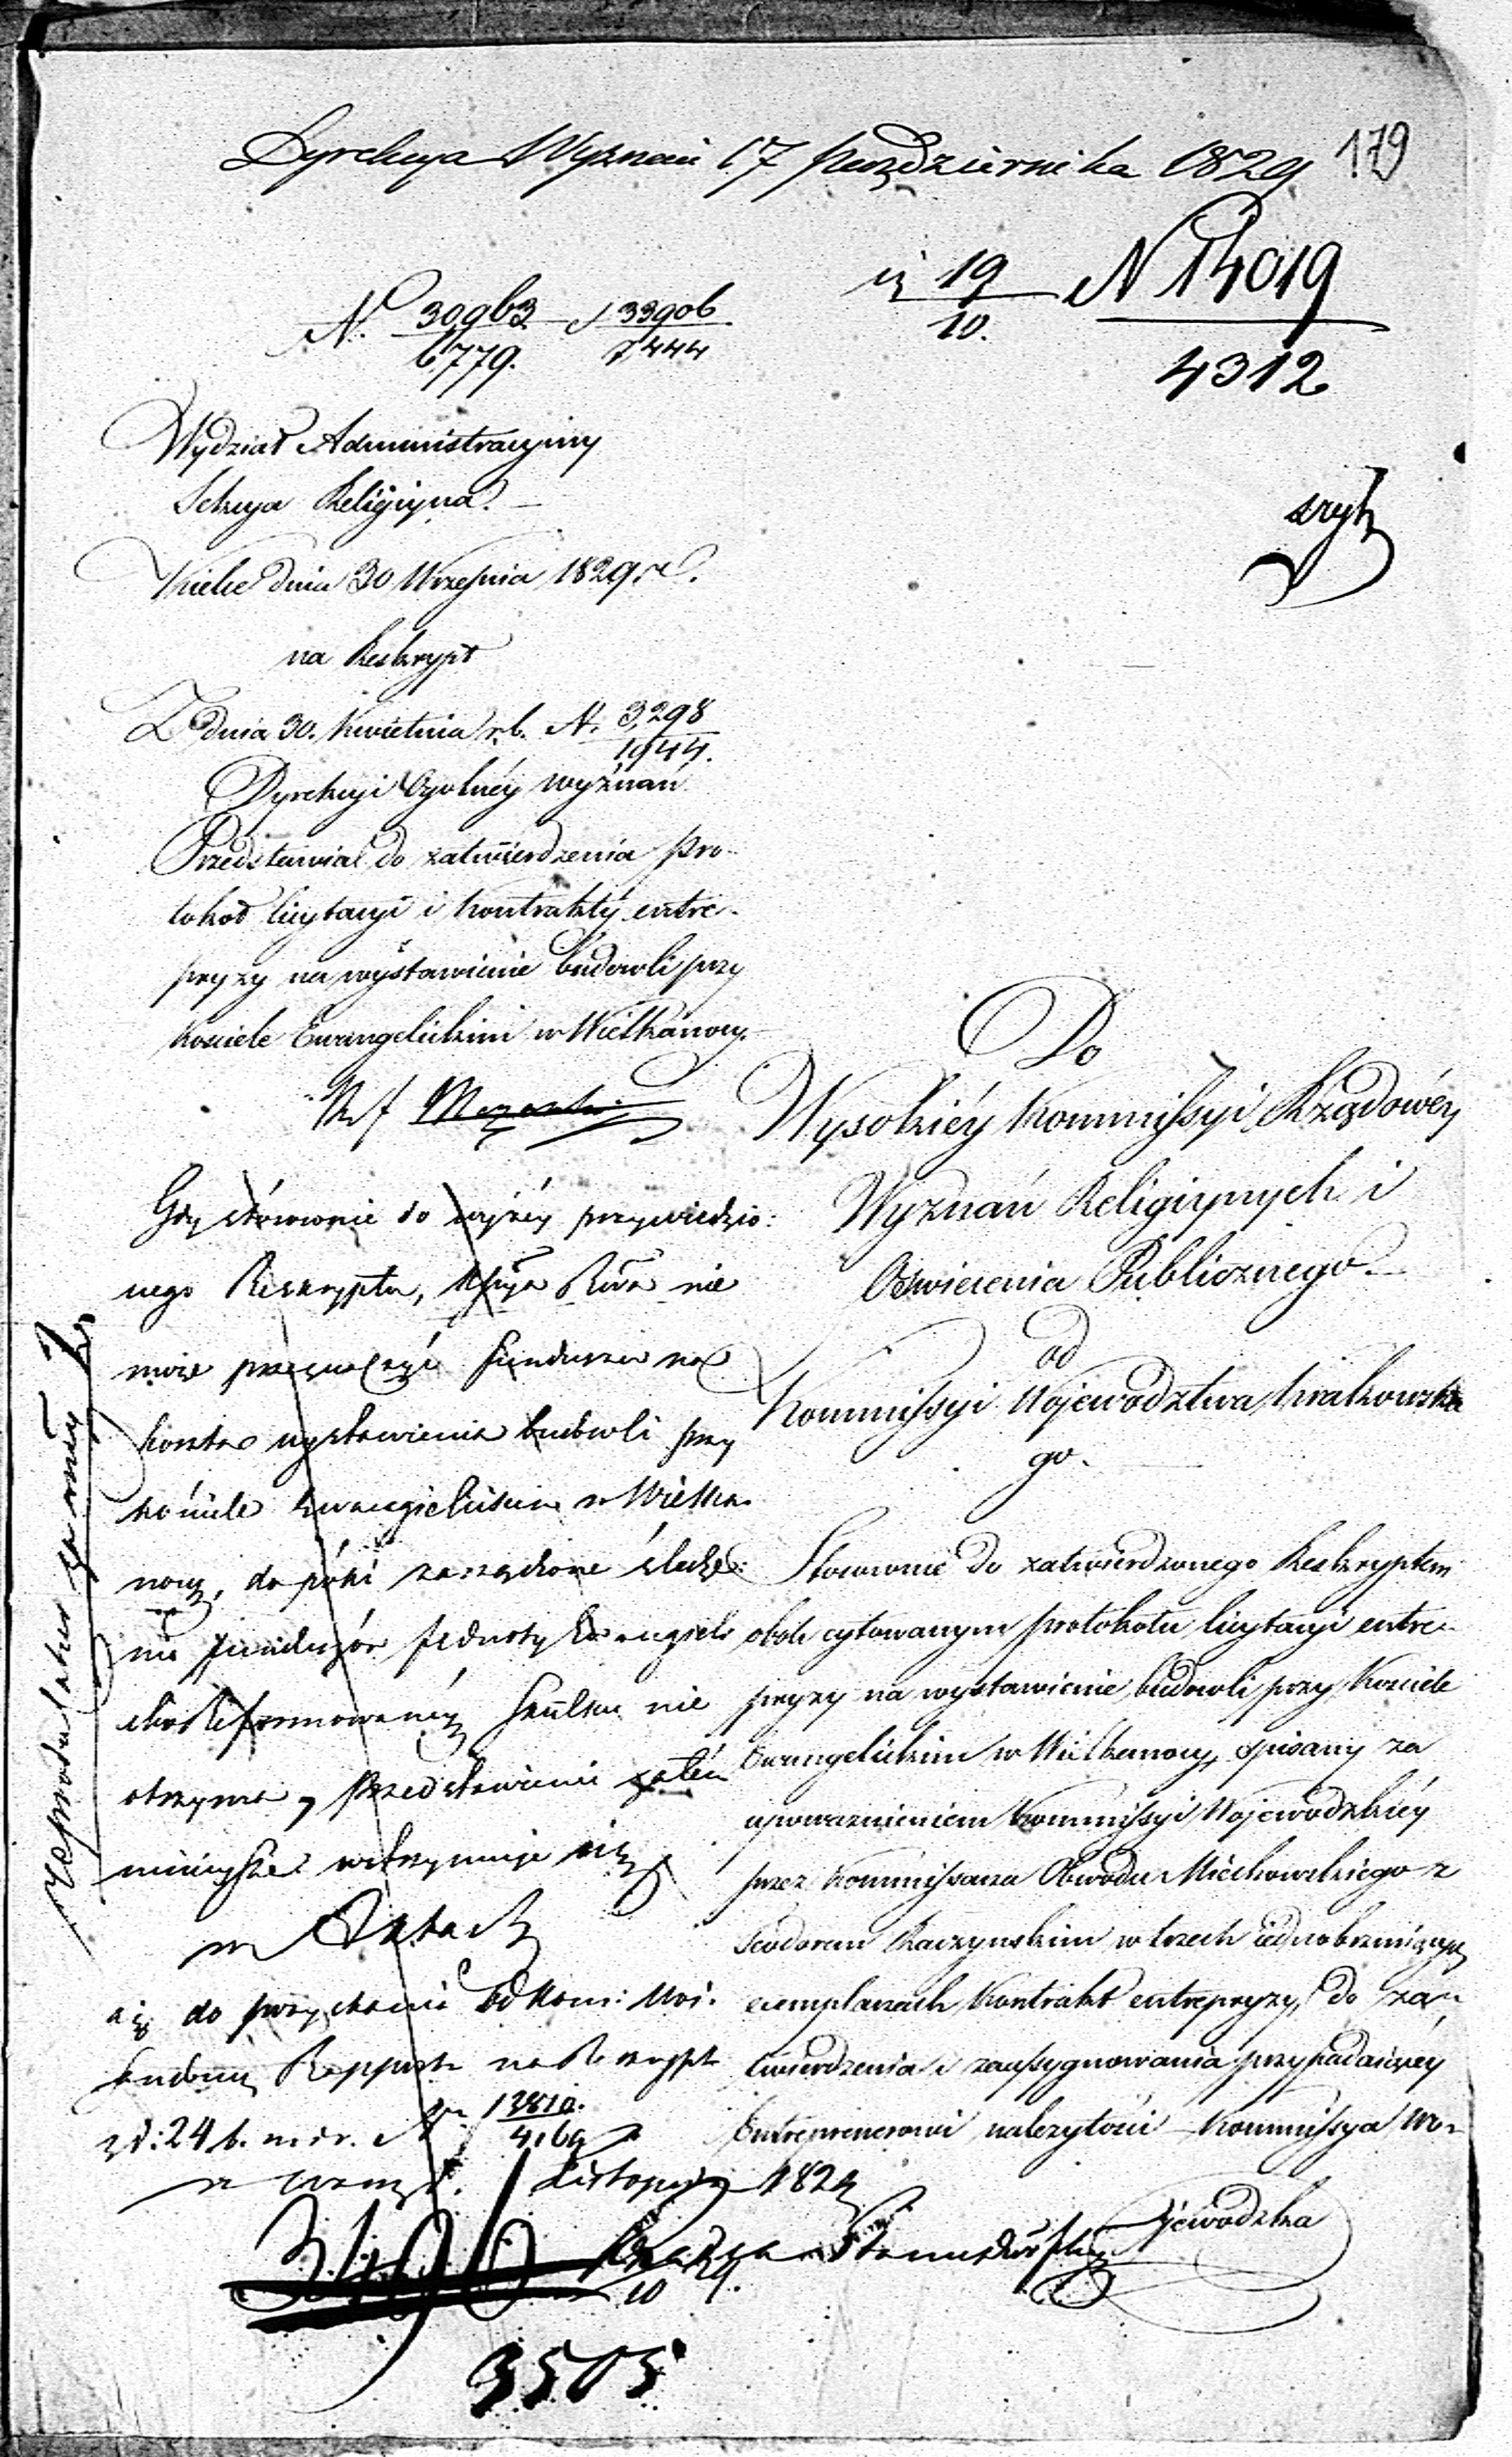 Dyrekcya Wyznań 17 Października 1829
179
19
10.
N 14019
4312
N. 30963 33906
6779. 7444
Wydział Administracyjny
Sekcya Religijna.
Kielce dnia 30 Września 1829 r.
na Reskrypt
Z dnia 30. Kwietnia r. b. N. 3,298
1944.
Dyrekcyi Ogólnéy wyznań
Przedstawia do zatwierdzenia pro-
tokoł licytacyi i kontrakty entre-
pryzy na wystawienie budowli przy
Kosciele Ewangelickim w Wielkanocy.
Do
Wysokiéy Kommissyi Rządowéy
Wyznań Religijnych i
Oświecenia Publicznego
od
Kommissyi Województwa Krakowskie
go.
Stosownie do zatwierdzonego Reskryptem
obok cytowanym protokołu licytacyi entre-
pryzy na wystawienie budowli przy Kosciele
Ewangelickim w Wielkanocy, spisany za
upoważnieniem Kommissyi Wojewodzkiéy
przez Kommissarza Obwodu Miechowskiego z
Teodorem Raczynskim w trzech jednobrzmiących
exemplarzach Kontrakt entrepryzy, do za-
twierdzenia i zaassygnowania przypadaiącey
Entreprenerowi należytości Kommissya Wo-
jewodzka
Gdy stósownie do wyżéy przywiedzio-
nego Reskryptu, Kssya Rda nie
może przeznaczyć funduszu na
koszta wystawienia budowli przy
kościele Ewangielickim w Wielka-
nocy, do póki zarządzone śledze-
nie funduszów Jednoty Ewangieli
cko Reformowanéy skutku nie
otrzyma, przedstawienie zatém
ninieysze wstrzymuje się
w Aktach
aż do przysłania od Kom: Woi.
Raportu na Reskrypt
zd: 24 b. m. i r. N 13810.
4169
Listopada 1829
10
3505